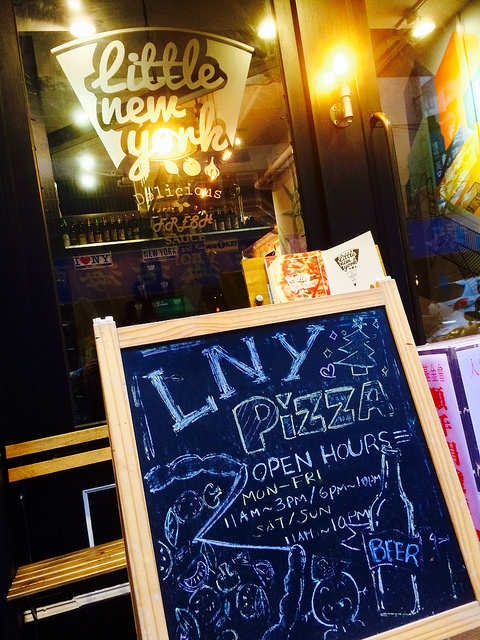 little
new
york
Delicious
FRESH
SAUCE
I NY
NEW YORK
little
new
york
LNY
PIZZA
OPEN HOURS
MON-FRI
11AM~3PM/6PM~10PM
SAT/SUN
11AM~10PM
BEER